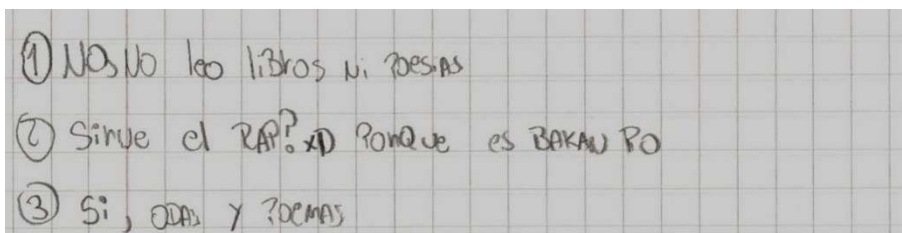 ① NO, NO leo libros Ni POESIAS
② Sirve el RAP? xD PORQue es BAKAN PO
③ Si, ODAS Y POEMAS